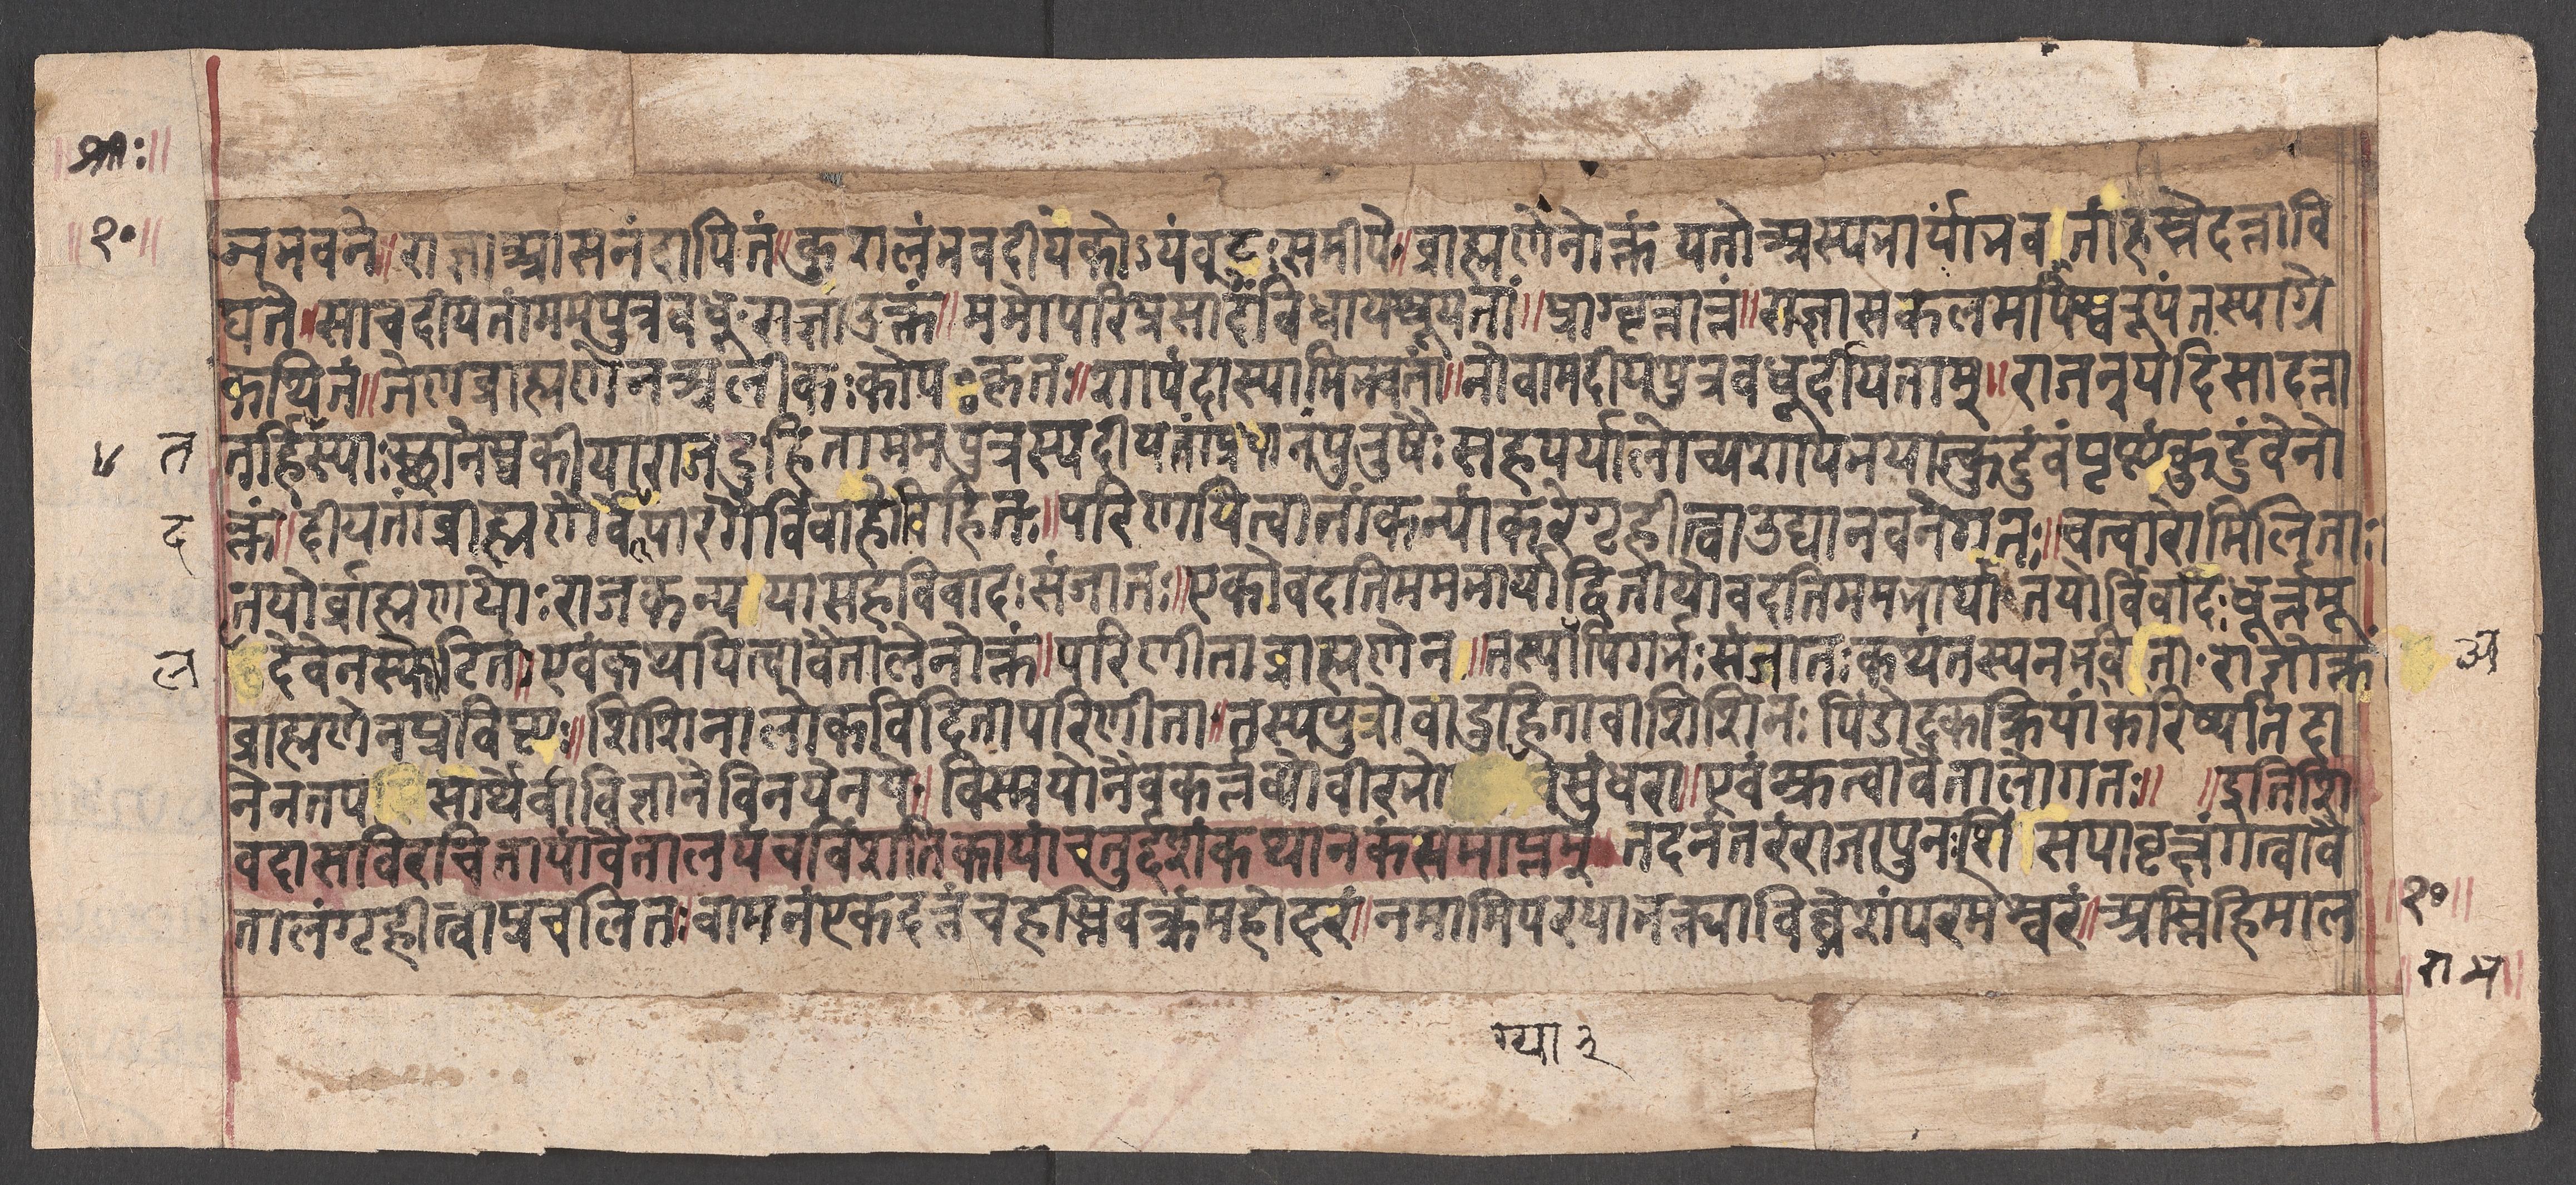 श्रीः
॥१०॥
न्भवने॥राज्ञाआसनंदापितं॥कुशलंभवदीयंकोऽयंबटुःसमीपे॥ब्राह्मणेनोक्तं यतोअस्यभार्याभवतांहस्तेदत्तावि
द्यते॥साचदीयतांममपुत्रवधूःराज्ञाउक्तं॥ममोपरिप्रसादंविधायश्रूयतां॥प्राग्वृत्तान्तं॥राज्ञासकलमपिस्वरूपंतस्याग्रे
कथितं॥तेणब्राह्मणेनअलीकःकोपःकृतः॥शापंदास्यामित्वतां॥नोवामदीयपुत्रवधूर्दीयताम्॥राजन्यदिसादत्ता
४ त तर्हिस्याःस्थानेस्वकीयाराजदुहितामममपुत्रस्यदीयतांप्रधानपुरुषैःसहपर्यालोच्यशापनयात्कुटुंबंपृष्टंकुटुंबेनो
द क्तं॥दीयतांब्राह्मणैर्वेपारगैर्विवाहोविहितः॥परिणयित्वातांकन्यांकरेगृहीत्वाउद्यानवनेगतः॥चत्वारोमिलिताः
तयोर्ब्राह्मणयोःराजकन्ययासहविवादःसंजातः॥एकोवदतिममभार्याद्वितीयोवदतिममभार्या तयोर्विवादःधूर्त्तमू
ल देवेनस्फेटितो॥एवंकथयित्वावेतालेनोक्तं॥परिणीताब्राह्मणेन॥तस्यापिगर्भःसंजातःकथंतस्यनभवति॥राज्ञोक्तं अ
ब्राह्मणेनप्रविष्टः॥शशिनालोकविदितापरिणीता॥तस्यपुत्रोवादुहितावाशशिनःपिंडोदकक्रियांकरिष्यति दा
नेनतप सिसौर्येवाविज्ञानेविनयेनये॥विस्मयोनैवकर्त्तव्योवीरभो वसुंधरा॥एवंश्रुत्वावेतालोगतः॥ ॥इतिशि
वदासविरचितायांवेतालपंचविंशतिकायांचतुर्द्दशंकथानकंसमाप्तम् तदनंतरंराजापुनःशिंसपावृक्षंगत्वावे
तालंगृहीत्वाप्रचलितः॥वामनंएकदन्तंचहस्तिवक्त्रंमहोदरं॥नमामिपरयाभक्त्याविघ्नेशंपरमेश्वरं॥अस्तिहिमाल
॥१०॥
॥राम॥
ग्या ३